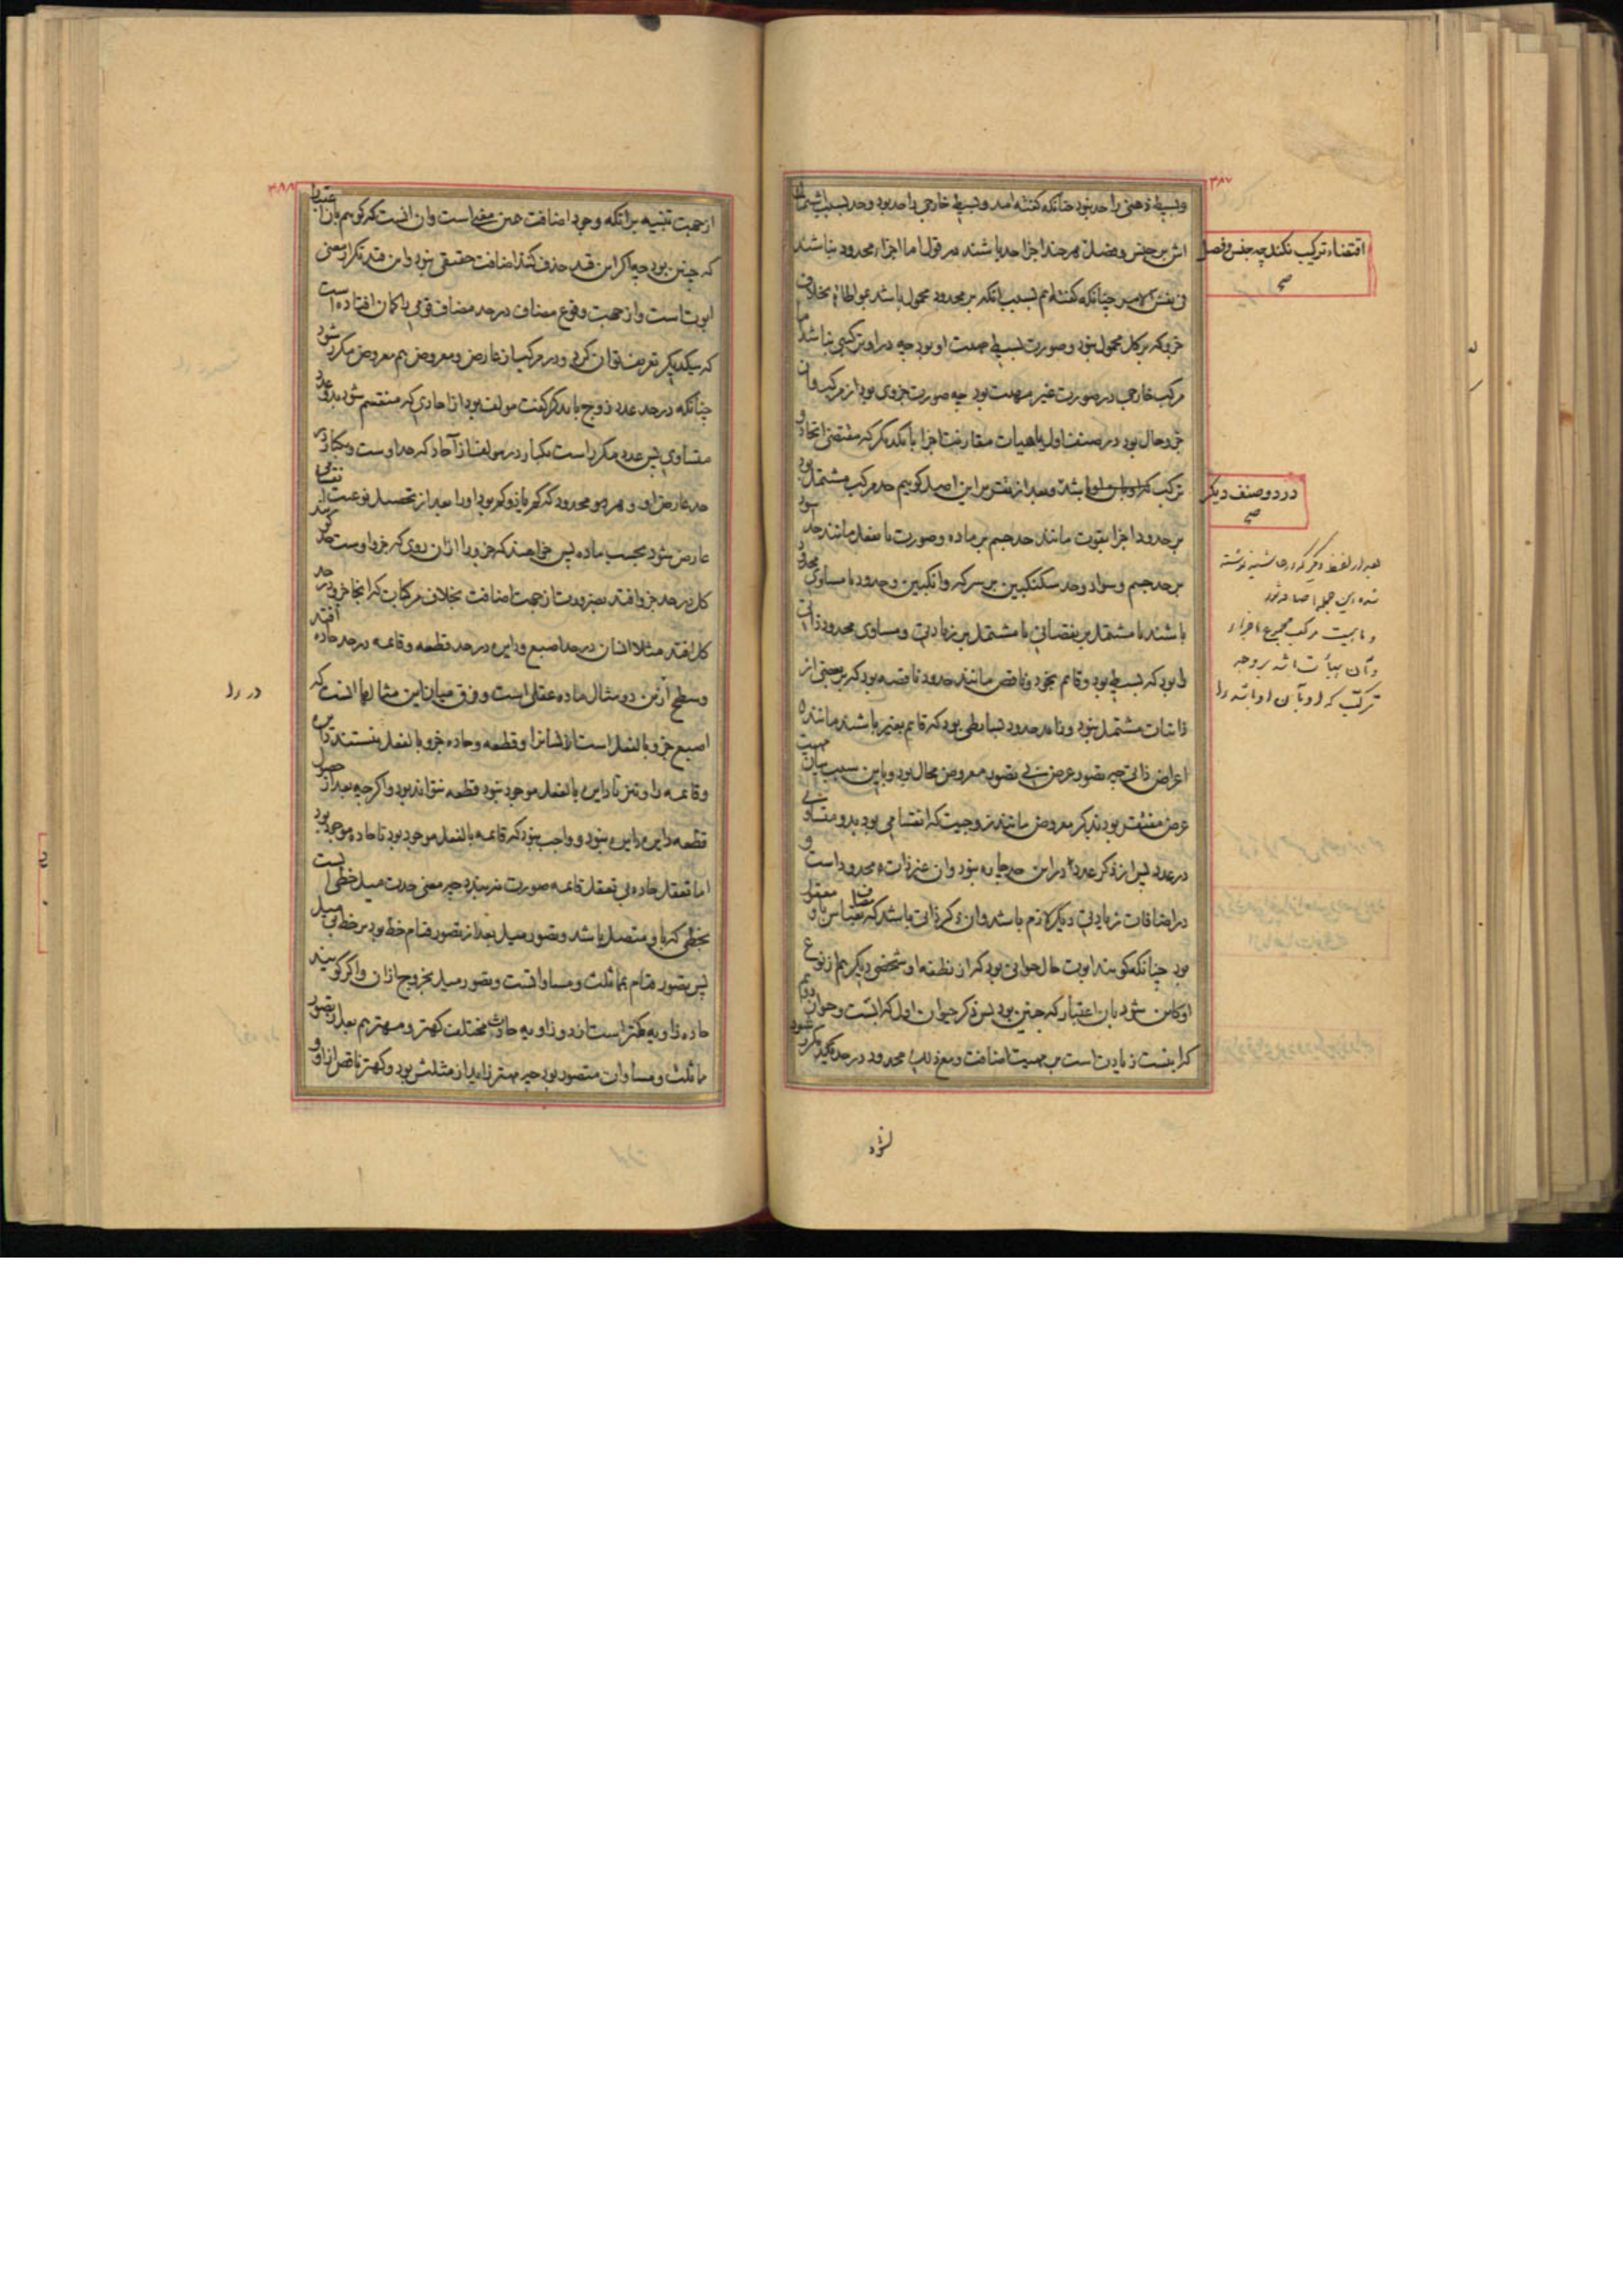 ۳۸۷
وبسیط ذهنی را حد نبود چنانکه گفته‌اند و بسیط خارجی را حد بود و حد بسبب اشتمال
اش بر جنس و فصل هر چند اجزا حد باشند در قول اما اجزاء محدود نباشند
فی نفس الامر چنانکه گفته‌ایم بسبب انکه بر محدود محمول باشد بمواطاة بخلاف
جزو که بر کل محمول نبود و صورت بسیط مهیت او بود چه در او ترکیبی نباشد اما
مرکب خارجی در صورت غیر مهیت بود چه صورت جزوی بود از مرکب وان
جزو حال بود در صنف اول یا هیات مقارنت اجزا با یکدیگر که مقتضی اتحاد و
ترکیب باشد و بعد از تقریر این اصل گوییم حد مرکب مشتمل بود
بر حدود اجزا بقوت مانند حد جسم بر ماده و صورت یا بفعل مانند حد سواد
بر حد جسم و سواد و حد سکنگبین بر سرکه و انگبین و حدود یا مساوی محدود
باشند یا مشتمل بر نقصانی یا مشتمل بر زیادتی و مساوی محدود ذاتی
را بود که بسیط بود و قایم بخود و ناقص مانند حدود ناقصه بود که بر بعضی از
ذاتیات مشتمل نبود و زاید حدود بسایطی بود که قایم بغیر باشند مانند
اعراض ذاتی چه تصور عرض بی تصور معروض محال بود و باین سبب بیان مهیت
عرض مفتقر بود بذکر معروض مانند زوجیت که انقسامی بود بدو متساوی
در عدد پس از ذکر عدد در این حد چاره نبود وان غیر ذات محدود است و
در اضافات زیادتی دیگر لازم باشد وان ذکر ذاتی باشد که مضاف بقیاس با او معقول
بود چنانکه گویند ابوت حال حیوانی بود که از نطفه او شخصی دیگر هم از نوع
او کاین شود بان اعتبار که چنین بود پس ذکر حیوان اول که ابست و حیوان دوم
که ابنست زیادت است بر مهیت اضافت و مع ذلک محدود در حد مکرر شود
اقتضاء ترکیب نکند چه جنس و فصل
صح
در دو صنف دیگر
صح
بعد از لفظ دیگر که در حاشیه نوشته
شده این جمله اضافه شود
و ماهیت مرکب مجموع اجزاء
و آن هیأت باشد بر وجه
ترکیب که او بآن او باشد را
۳۸۸
از جهت تنبیه بر انکه وجود اضافت عین مغیا است وان انست که گوییم بان اعتبار
که چنین بود چه اگر این قید حذف کنند اضافت حقیقی نبود و این قید تکرار معنی
ابوت است و از جهت وقوع مضاف در حد مضاف قومی را گمان افتاده است
که بیکدیگر تعریف توان کرد و در مرکب از عارض و معروض هم معروض مکرر شود
چنانکه در حد عدد زوج باید که گفت مولف بود از احادی که منقسم شود بدو عدد
متساوی پس عدد مکرر است یکبار در مولف از آحاد که حد اوست و یکبار در
حد عارض او و هر دو محدود که
عارض شود بحسب ماده پس خواهند که جزو را از ان روی که جزو اوست حد گویند
کل در حد جزو افتد بضرورت از جهت اضافت بخلاف مرکبات که انجا جزو در حد
کل افتد مثلا انسان در حد اصبع و دایره در حد قطعه و قایمه در حد حاده افتد
و سطح از این دو مثال ماده عقلی است و فرق میان این مثالها انست که
اصبع جزو بالفعل است انسانرا و قطعه و حاده جزو بالفعل نیستند دایره
و قایمه را و نیز تا دایره بالفعل موجود نبود قطعه نتواند بود و اگر چه بعد از حصول
قطعه دایره دایره نبود و واجب نبود که قایمه بالفعل موجود بود تا حاده موجود بود
اما تعقل حاده بی تعقل قایمه صورت نبندد چه معنی حدت میل خطی است
بخطی که با او متصل باشد و تصور میل بعد از تصور قیام خط بود بر خط بی میل
پس تصور قیام بمماثلت و مساواتست و تصور میل بخروج از ان و اگر گویند
حاده زاویه کهتر است از دو زاویه حادث مختلف کهتر و مهتر هم بعد از تصور
مماثلت و مساوات متصور بود چه مهتر زاید از مثلش بود و کهتر ناقص از او و
در را
لغزه